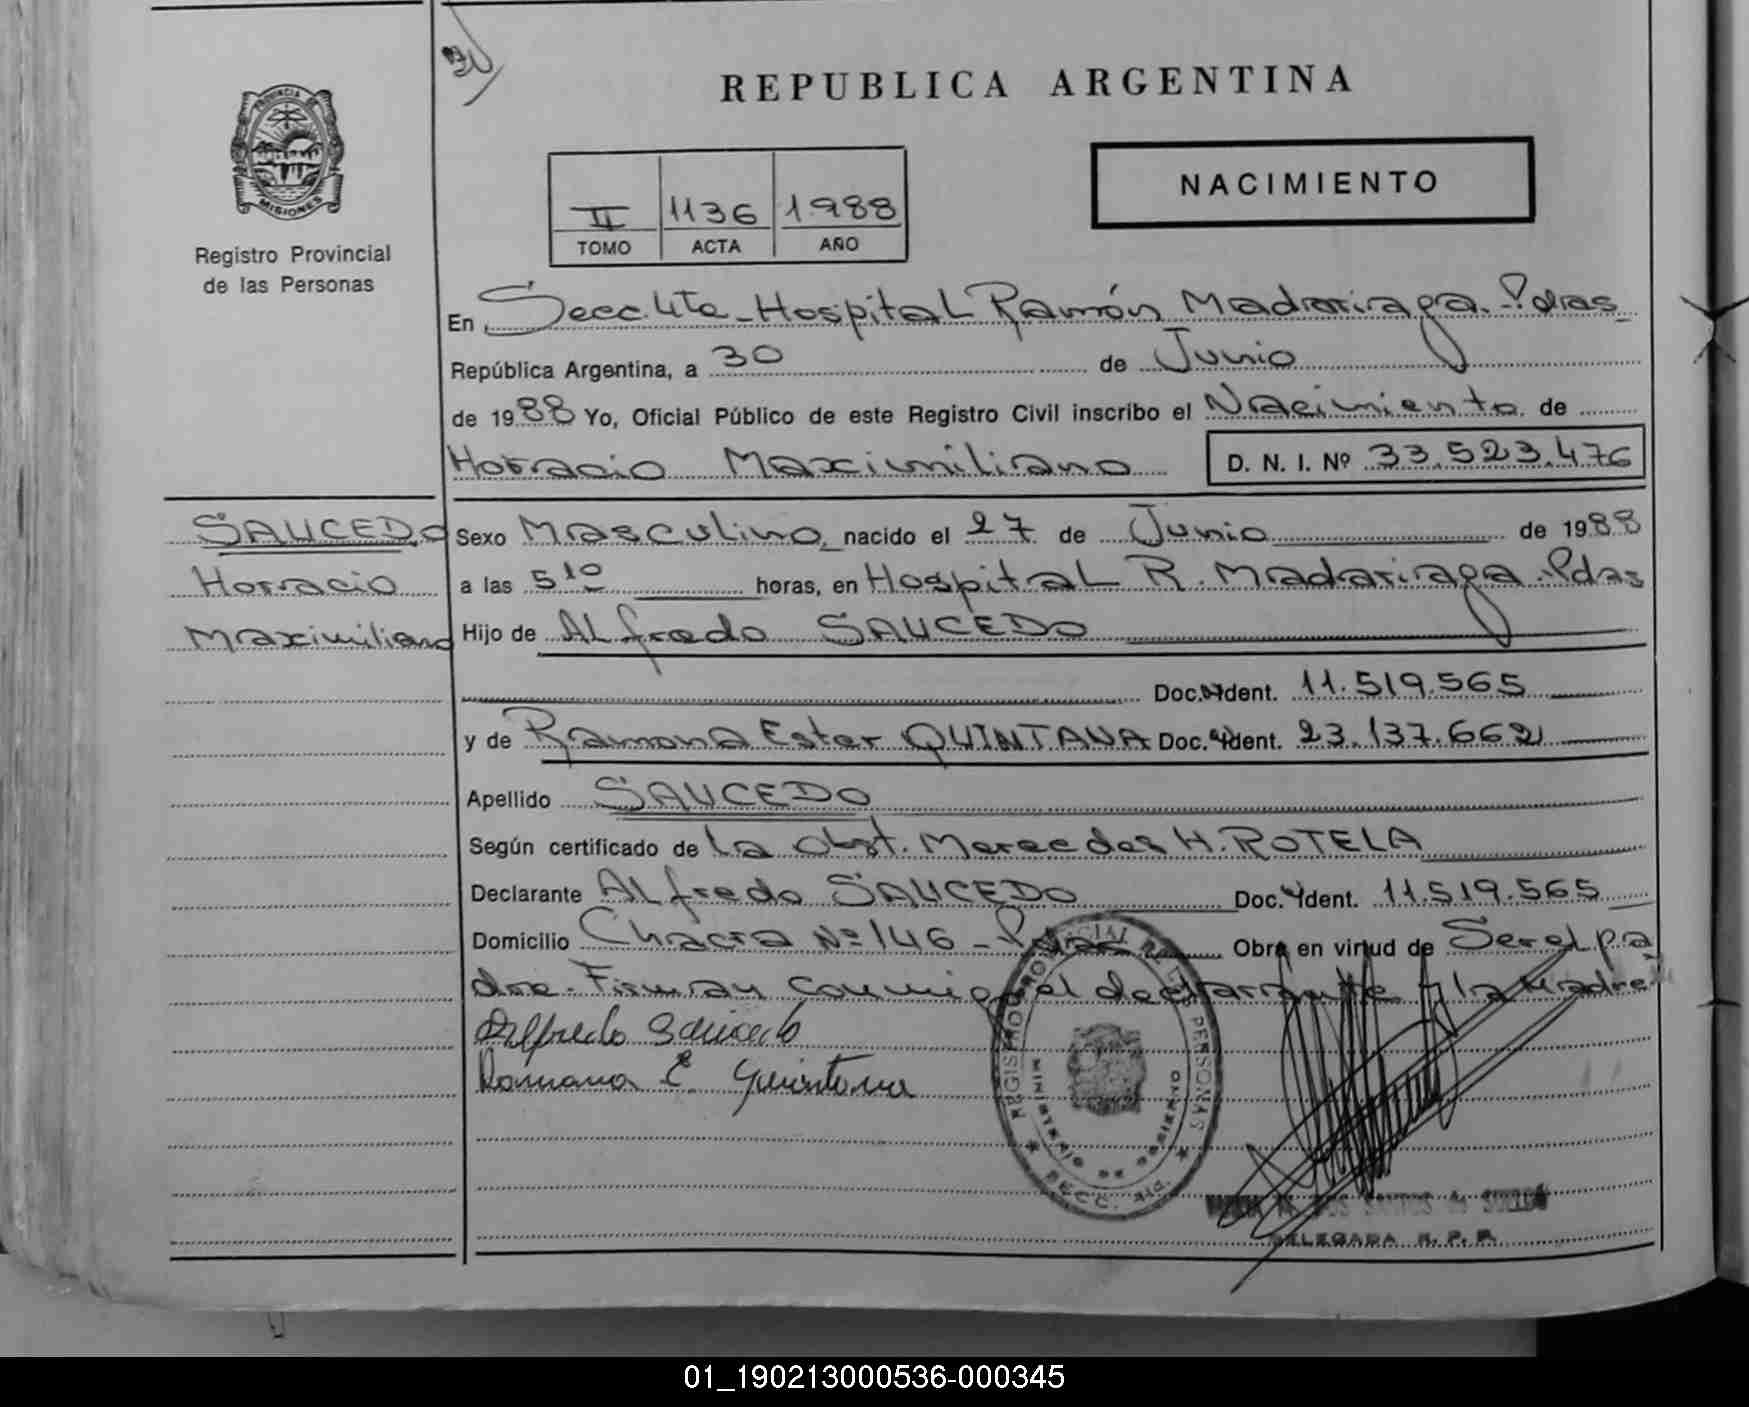 REPUBLICA ARGENTINA
PROVINCIA DE
MISIONES
Registro Provincial
de las Personas
NACIMIENTO
II 1136 1.988
TOMO ACTA AÑO
En Secc. 4ta - Hospital Ramón Madariaga. Pdas
República Argentina, a 30 de Junio
de 1988 Yo, Oficial Público de este Registro Civil inscribo el Nacimiento de
Horacio Maximiliano D. N. I. Nº 33.523.476
SAUCEDO
Horacio
Maximiliano
Sexo Masculino, nacido el 27 de Junio de 1988
a las 5 10 horas, en Hospital R. Madariaga. Pdas
Hijo de Alfredo SAUCEDO
Doc. Ident. 11.519.565
y de Ramona Ester QUINTANA Doc. Ident. 23.137.662
Apellido SAUCEDO
Según certificado de la Obst. Mercedes H. ROTELA
Declarante Alfredo SAUCEDO Doc. Ident. 11.519.565
Domicilio Chacra Nº 146 - Pdas Obra en virtud de Ser el pa
dre. Firman conmigo el declarante y la Madre
Alfredo Saucedo
Ramona E. Quintana
REGISTRO PROVINCIAL DE LAS PERSONAS
MINISTERIO DE GOBIERNO
SECC. 4ta.
DOS SANTOS de
DELEGADA R. P. P.
01_190213000536-000345